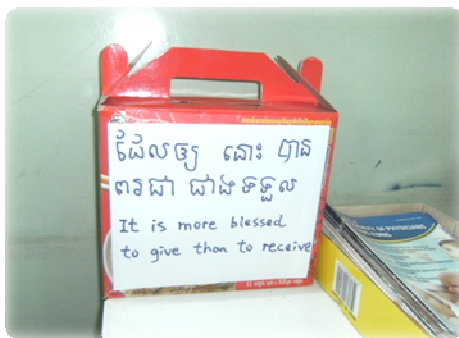 ដែលឲ្យ នោះ បាន
ពរជា ជាងទទួល
It is more blessed
to give than to receive